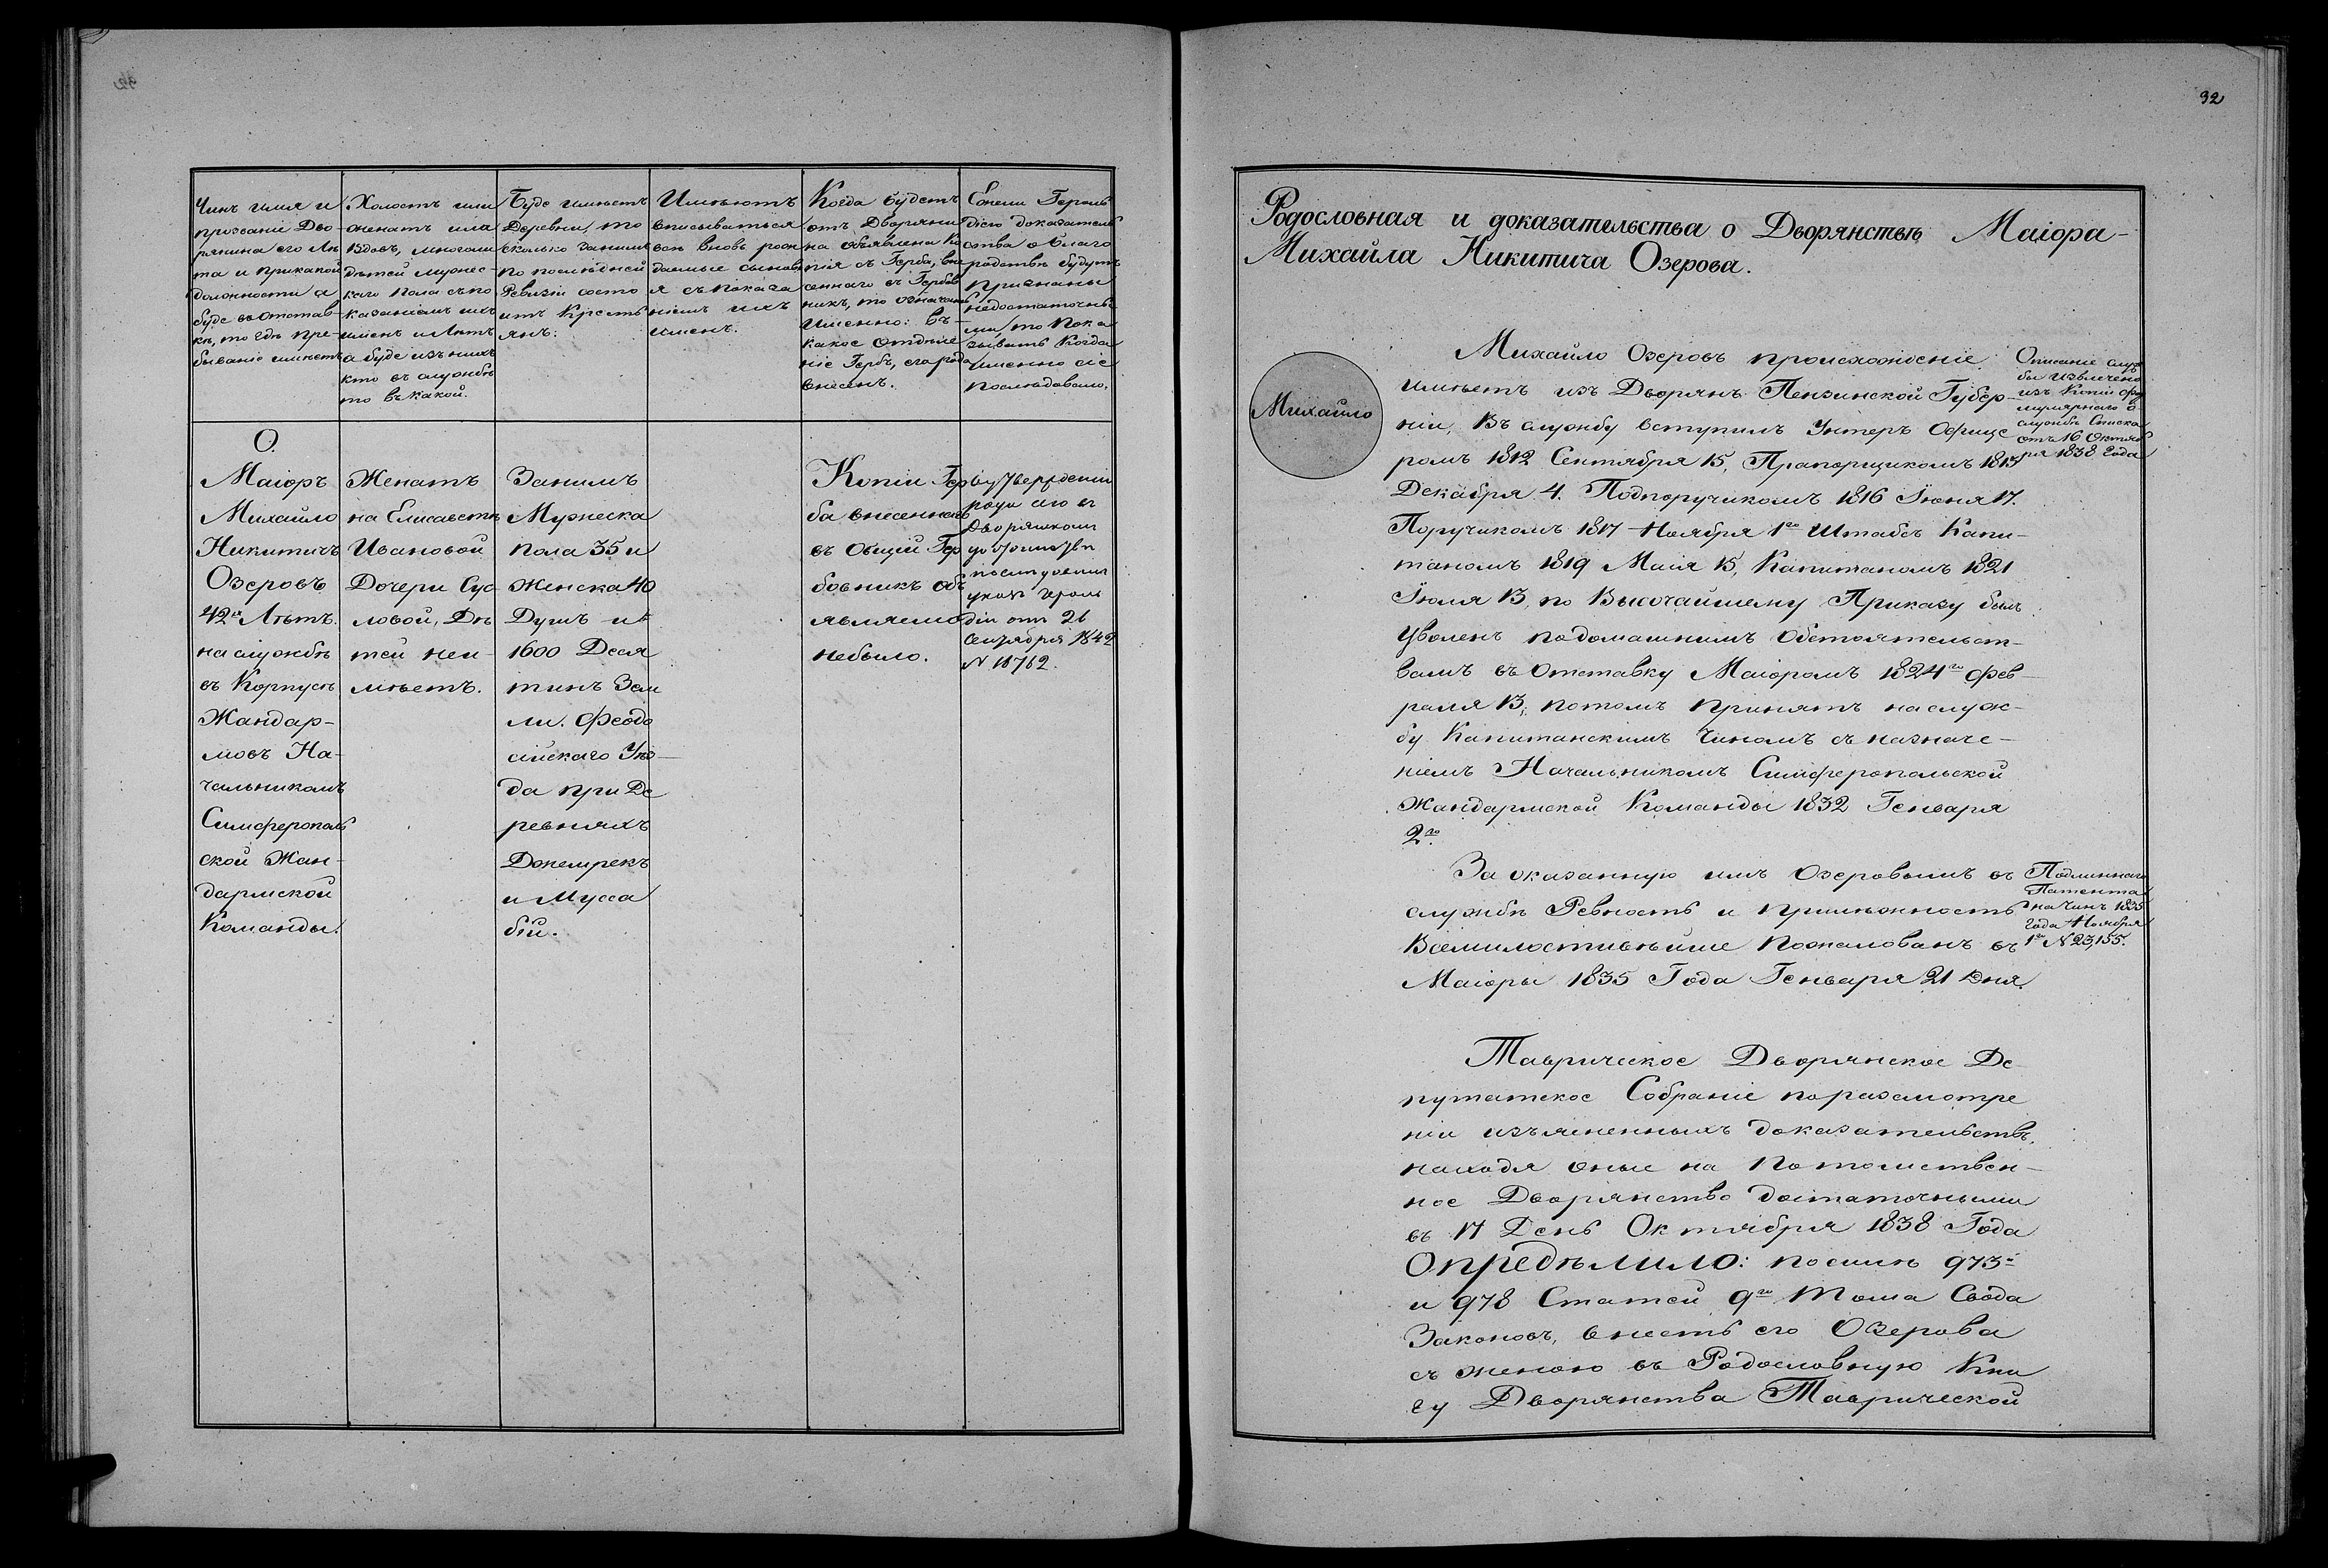 Чинъ имя и
прозваніе Дво-
рянина его лѣ
та и при какой
должности а
буде въ отстав-
кѣ, то гдѣ пре-
бываніе имѣетъ
Холостъ или
женатъ или
Вдовъ, многоли
дѣтей мужес-
каго пола съ по
казаніемъ ихъ
именъ и Лѣтъ
а буде изъ нихъ
кто въ службѣ
то въ какой.
Буде имѣетъ
Деревни, то
сколько за нимъ
по послѣдней
Ревизіи состо
итъ Крѣсть
янъ.
Имѣютъ
вписываться
всѣ вновь рож
даемые сыновь
я съ показа
ніемъ ихъ
именъ.
Когда будетъ
отъ Дворяни
на объявлена Ко
пія съ Герба, вне
сеннаго въ Гербов
никъ, то означать
именно: въ
какое отдѣле
ніе Гербъ, его рода
внесенъ.
Ежели Героль
діею доказатель
ства о благо
родствѣ будутъ
признаны
недостаточны
ми, то пока
зывать когда
именно сіе
послѣдовало.
О.
Маіоръ
Михайло
Никитичъ
Озеровъ
42х Лѣтъ.
на службѣ
въ Корпусѣ
Жандар-
мовъ На-
чальникомъ
Симферополь
ской Жан-
дармской
Команды.
Женатъ
на Елисаветѣ
Ивановой
Дочери Сус
ловой, Дѣ
тей неи-
мѣетъ.
Занимъ
Мужеска
пола 35 и
Женска 40
Душъ и
1600 Деся
тинъ Зем
ли. Феодо
сійскаго Уѣз
да при Де
ревняхъ
Джемрекъ
и Мусса
бій.
Копіи Гер
ба внесеннаго
въ Общій Гер
бовникъ объ
являемо
небыло.
Объ утвержденіи
рода его въ
Дворянскомъ
достоинствѣ
послѣдовалъ
указъ Героль
діи отъ 26
Сентября 1842
N 11762.
32
Родословная и доказательства о Дворянствѣ Маіора-
Михайла Никитича Озерова.
Михайло
Михайло Озеровъ происхожденіе
имѣетъ изъ Дворянъ Пензинской Губер-
ніи, Въ службу вступилъ Унтеръ Офице
ромъ 1812 Сентября 15, Прапорщикомъ 1813
Декабря 4. Подпоручикомъ 1816 Іюня 17.
Поручикомъ 1817 Ноября 1го Штабсъ Капи-
таномъ 1819 Маія 15, Капитаномъ 1821
Іюля 13, по Высочайшему Приказу былъ
Уволенъ подомашнимъ обстоятельст-
вамъ въ Отставку Маіоромъ 1824го Фев-
раля 13; потомъ принятъ наслуж-
бу Капитанскимъ Чиномъ съ назначе-
ніемъ Начальникомъ Симферопольской
Жандармской Команды 1832 Генваря
2го.
Описаніе служ
бы извлечено
изъ Копіи фор
мулярнаго о
службѣ Списка
отъ 16 Октяб
ря 1838 Года
За оказанную имъ Озеровымъ въ
службѣ Ревность и прилѣжность
Всемилостивѣйше пожалованъ въ
Маіоры 1835 Года Генваря 21 Дня.
Подлиннаго
Патента
на чинъ 1835
Года Ноября
1го N 23,155.
Таврическое Дворянское Де-
путатское Собраніе поразсмотре
ніи изъясненныхъ доказательствъ,
находя оныя на потомствен-
ное Дворянство достаточными
въ 17 День Октября 1838 Года
Опредѣлило: посилѣ 973й
и 978 Статей 9го Тома Свода
Законовъ, внесть его Озерова
съ женою въ Родословную Кни
гу Дворянства Таврической